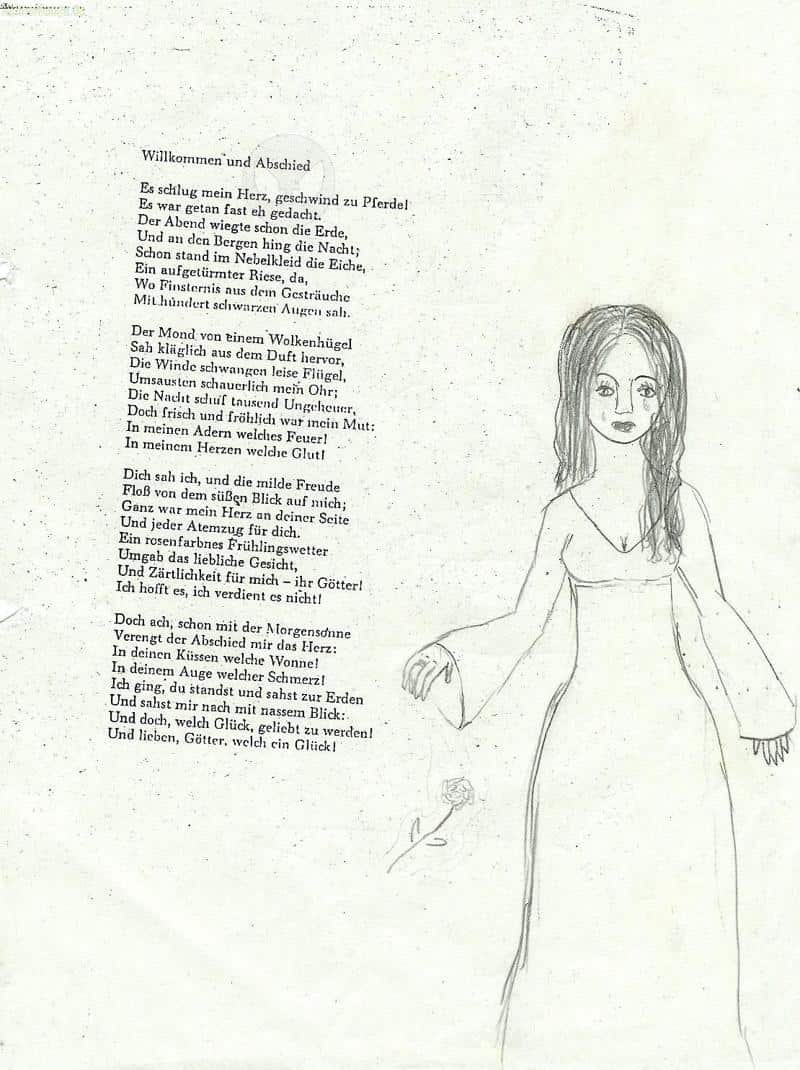 Willkommen und Abschied
Es schlug mein Herz, geschwind zu Pferde!
Es war getan fast eh gedacht.
Der Abend wiegte schon die Erde,
Und an den Bergen hing die Nacht;
Schon stand im Nebelkleid die Eiche,
Ein aufgetürmter Riese, da,
Wo Finsternis aus dem Gesträuche
Mit hundert schwarzen Augen sah.
Der Mond von einem Wolkenhügel
Sah kläglich aus dem Duft hervor,
Die Winde schwangen leise Flügel,
Umsausten schauerlich mein Ohr;
Die Nacht schuf tausend Ungeheuer,
Doch frisch und fröhlich war mein Mut:
In meinen Adern welches Feuer!
In meinem Herzen welche Glut!
Dich sah ich, und die milde Freude
Floß von dem süßen Blick auf mich;
Ganz war mein Herz an deiner Seite
Und jeder Atemzug für dich.
Ein rosenfarbnes Frühlingswetter
Umgab das liebliche Gesicht,
Und Zärtlichkeit für mich – ihr Götter!
Ich hofft es, ich verdient es nicht!
Doch ach, schon mit der Morgensonne
Verengt der Abschied mir das Herz:
In deinen Küssen welche Wonne!
In deinem Auge welcher Schmerz!
Ich ging, du standst und sahst zur Erden
Und sahst mir nach mit nassem Blick:
Und doch, welch Glück, geliebt zu werden!
Und lieben, Götter, welch ein Glück!